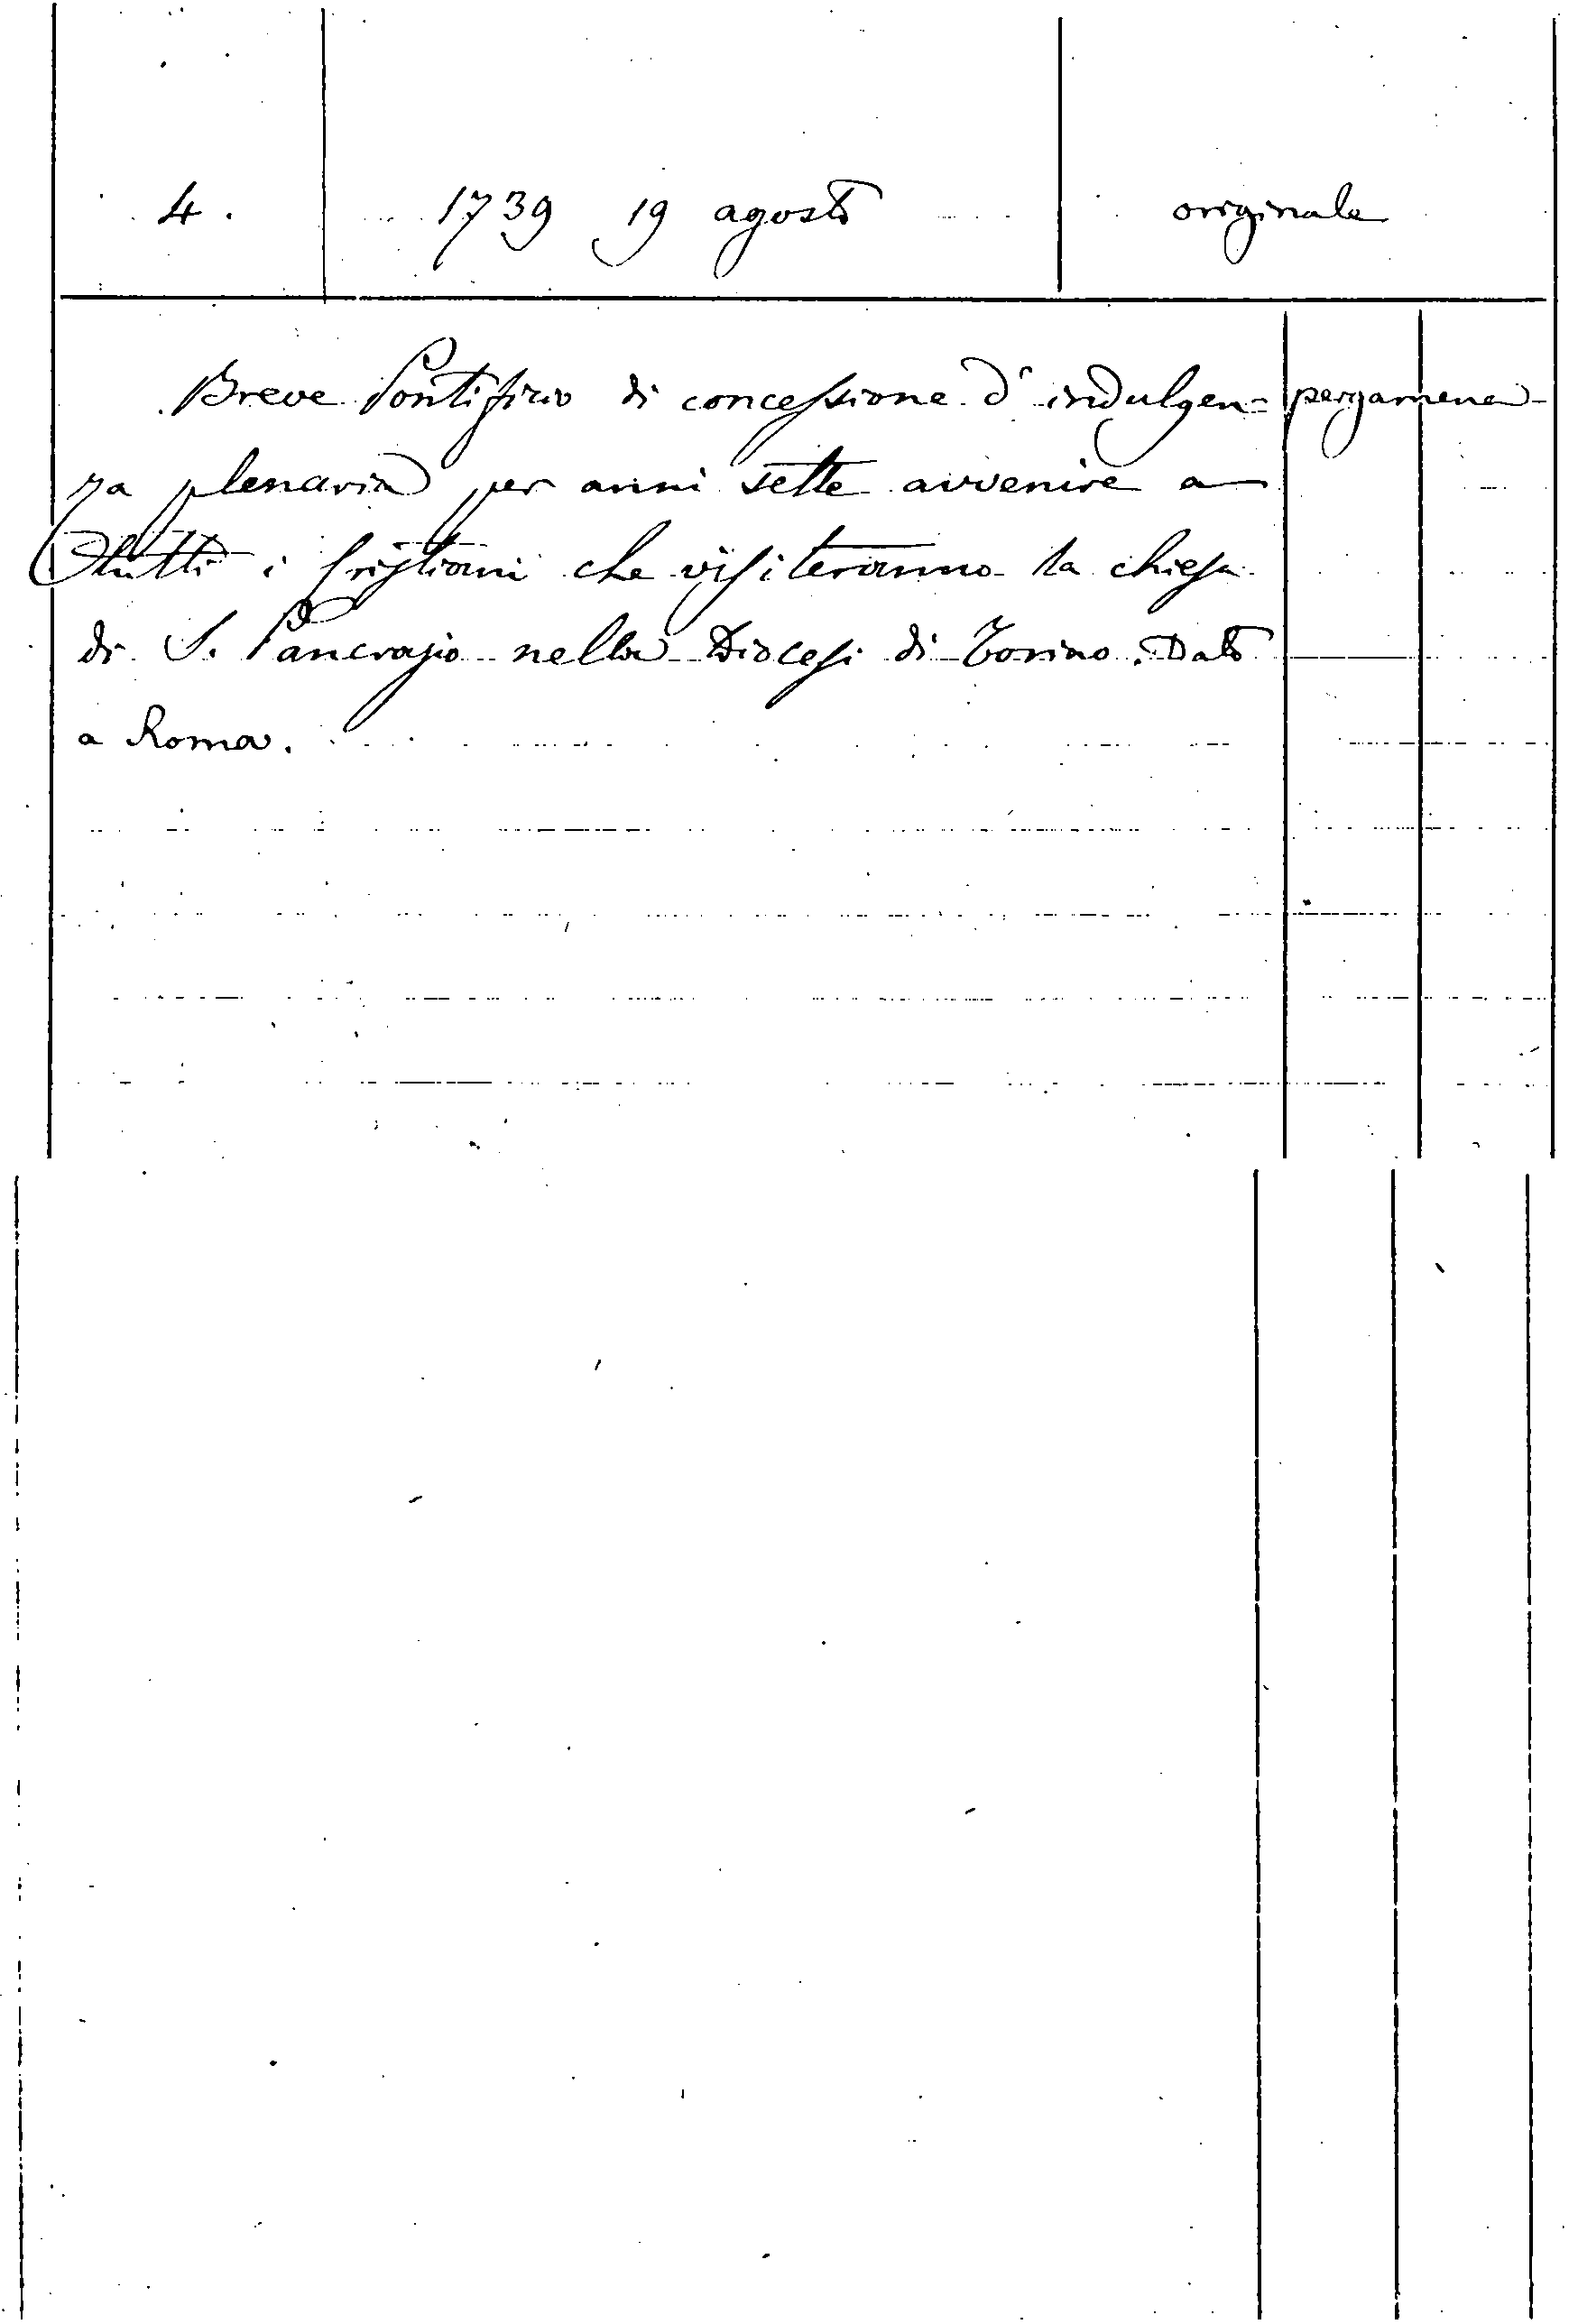 4. 1739 19 agosto originale
Breve Pontificio di concessione d'indulgen= pergamena
za plenaria per anni sette avvenire a
tutti i Cristiani che visiteranno la chiesa
di S. Pancrazio nella Diocesi di Torino. Dato
a Roma.